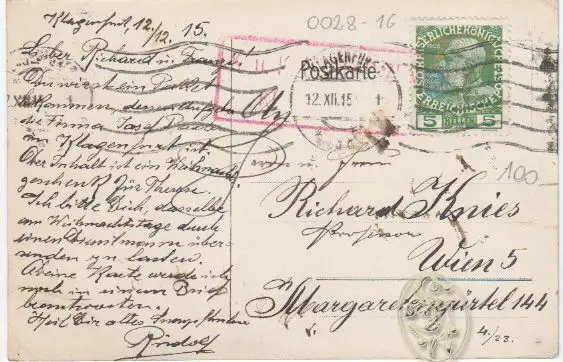 0028-16
Klagenfurt 12./12. 15.
Lieber Richard u. Franzi!
Du wirst ein Packet
bekommen, dessen Aufgeber
die Firma Josef
in Klagenfurt ist.
Der Inhalt ist ein Weihnachts-
geschenk für Therese.
Ich bitte Dich dasselbe
am Weihnachtstage durch
einen Dienstmann über-
senden zu lassen.
Deine Karte werde ich
noch in einem Brief
beantworten.
Heil Dir altes
Rudolf
KLAGENFURT
Postkarte
12.XII.15
1
KAISERLICHE KÖNIGL.
ÖSTERREICHISCHE
5 HELLER 5
100-
Herrn
Richard Knies
Professor
Wien 5
Margaretengürtel 144
4./23.